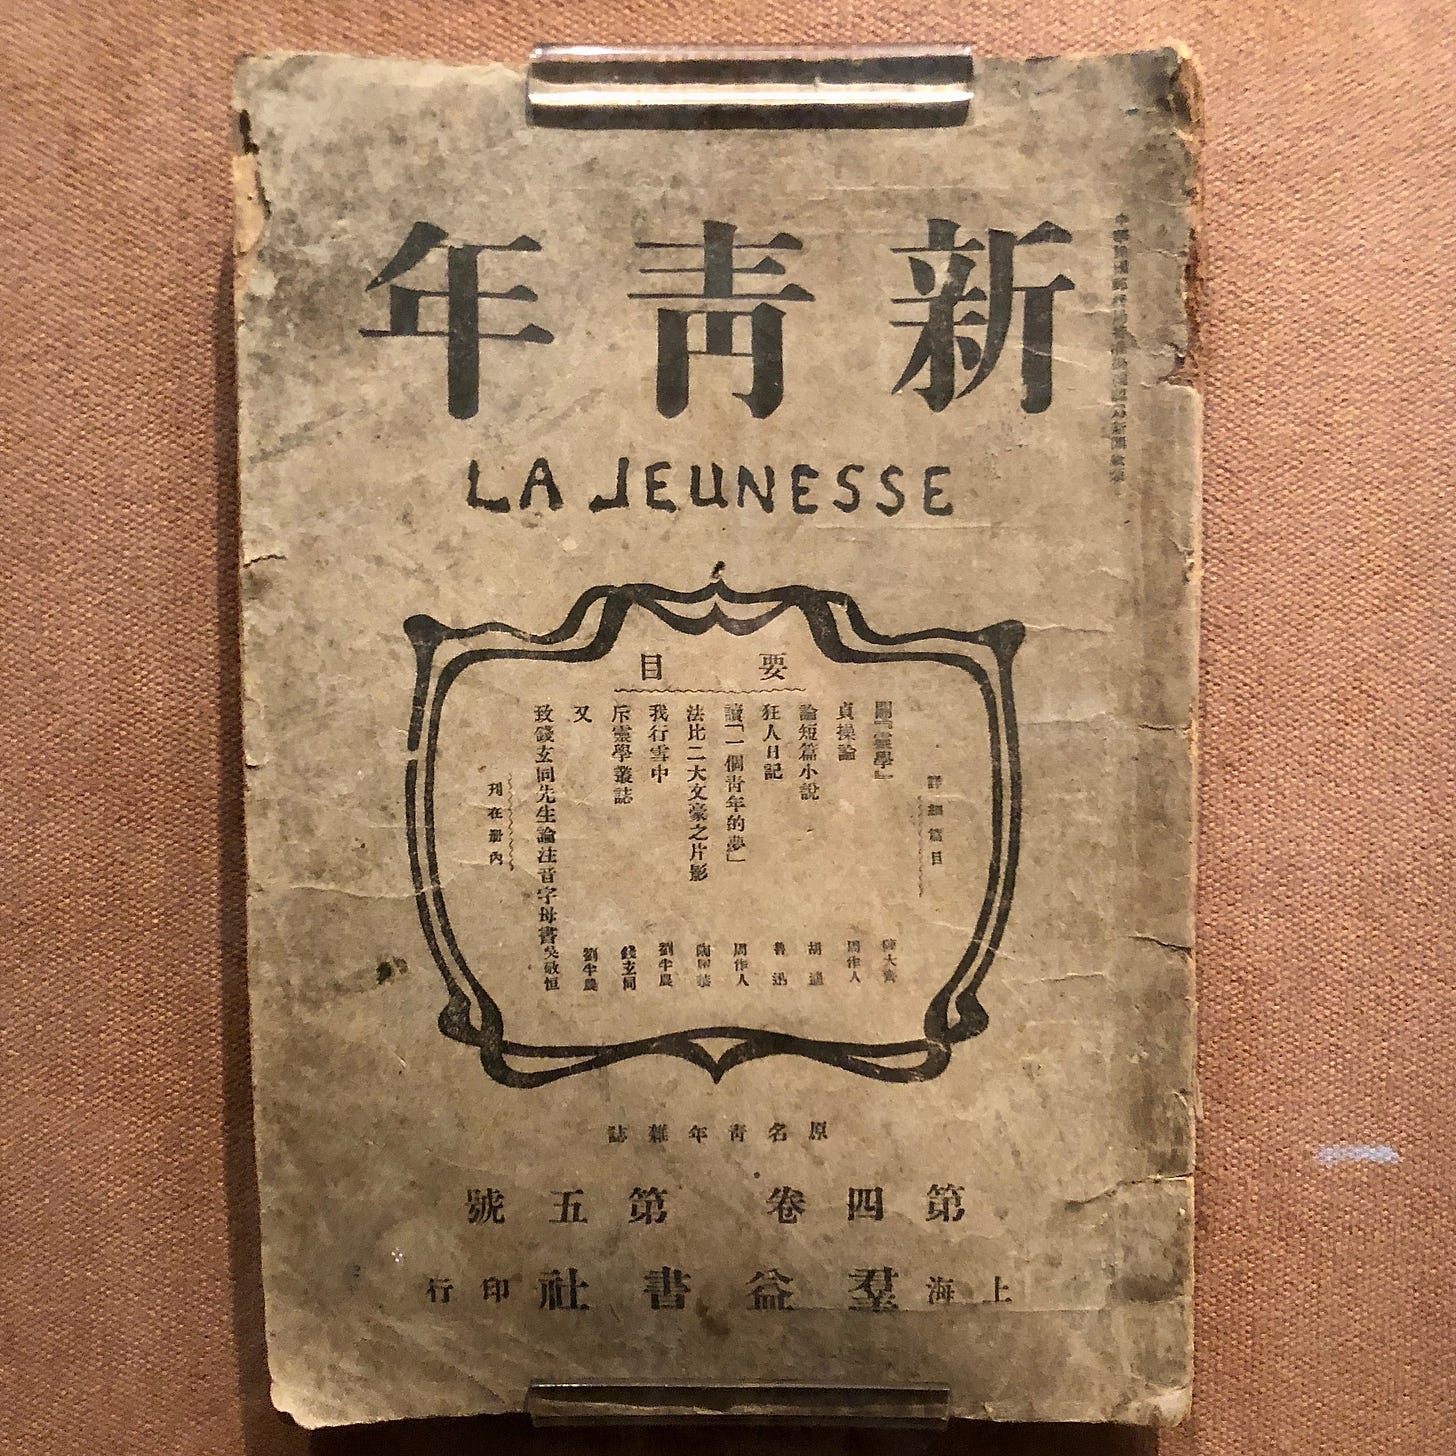 新青年
LA JEUNESSE
要目
詳細篇目
闢「靈學」 陳大齊
貞操論 周作人
論短篇小說 胡適
狂人日記 魯迅
讀「一個青年的夢」 周作人
法比二大文豪之片影 陶履恭
我行雪中 劉半農
斥靈學叢誌 錢玄同
又 劉半農
致錢玄同先生論注音字母書 吳敬恒
刊在册內
原名青年雜誌
第四卷 第五號
上海羣益書社印行